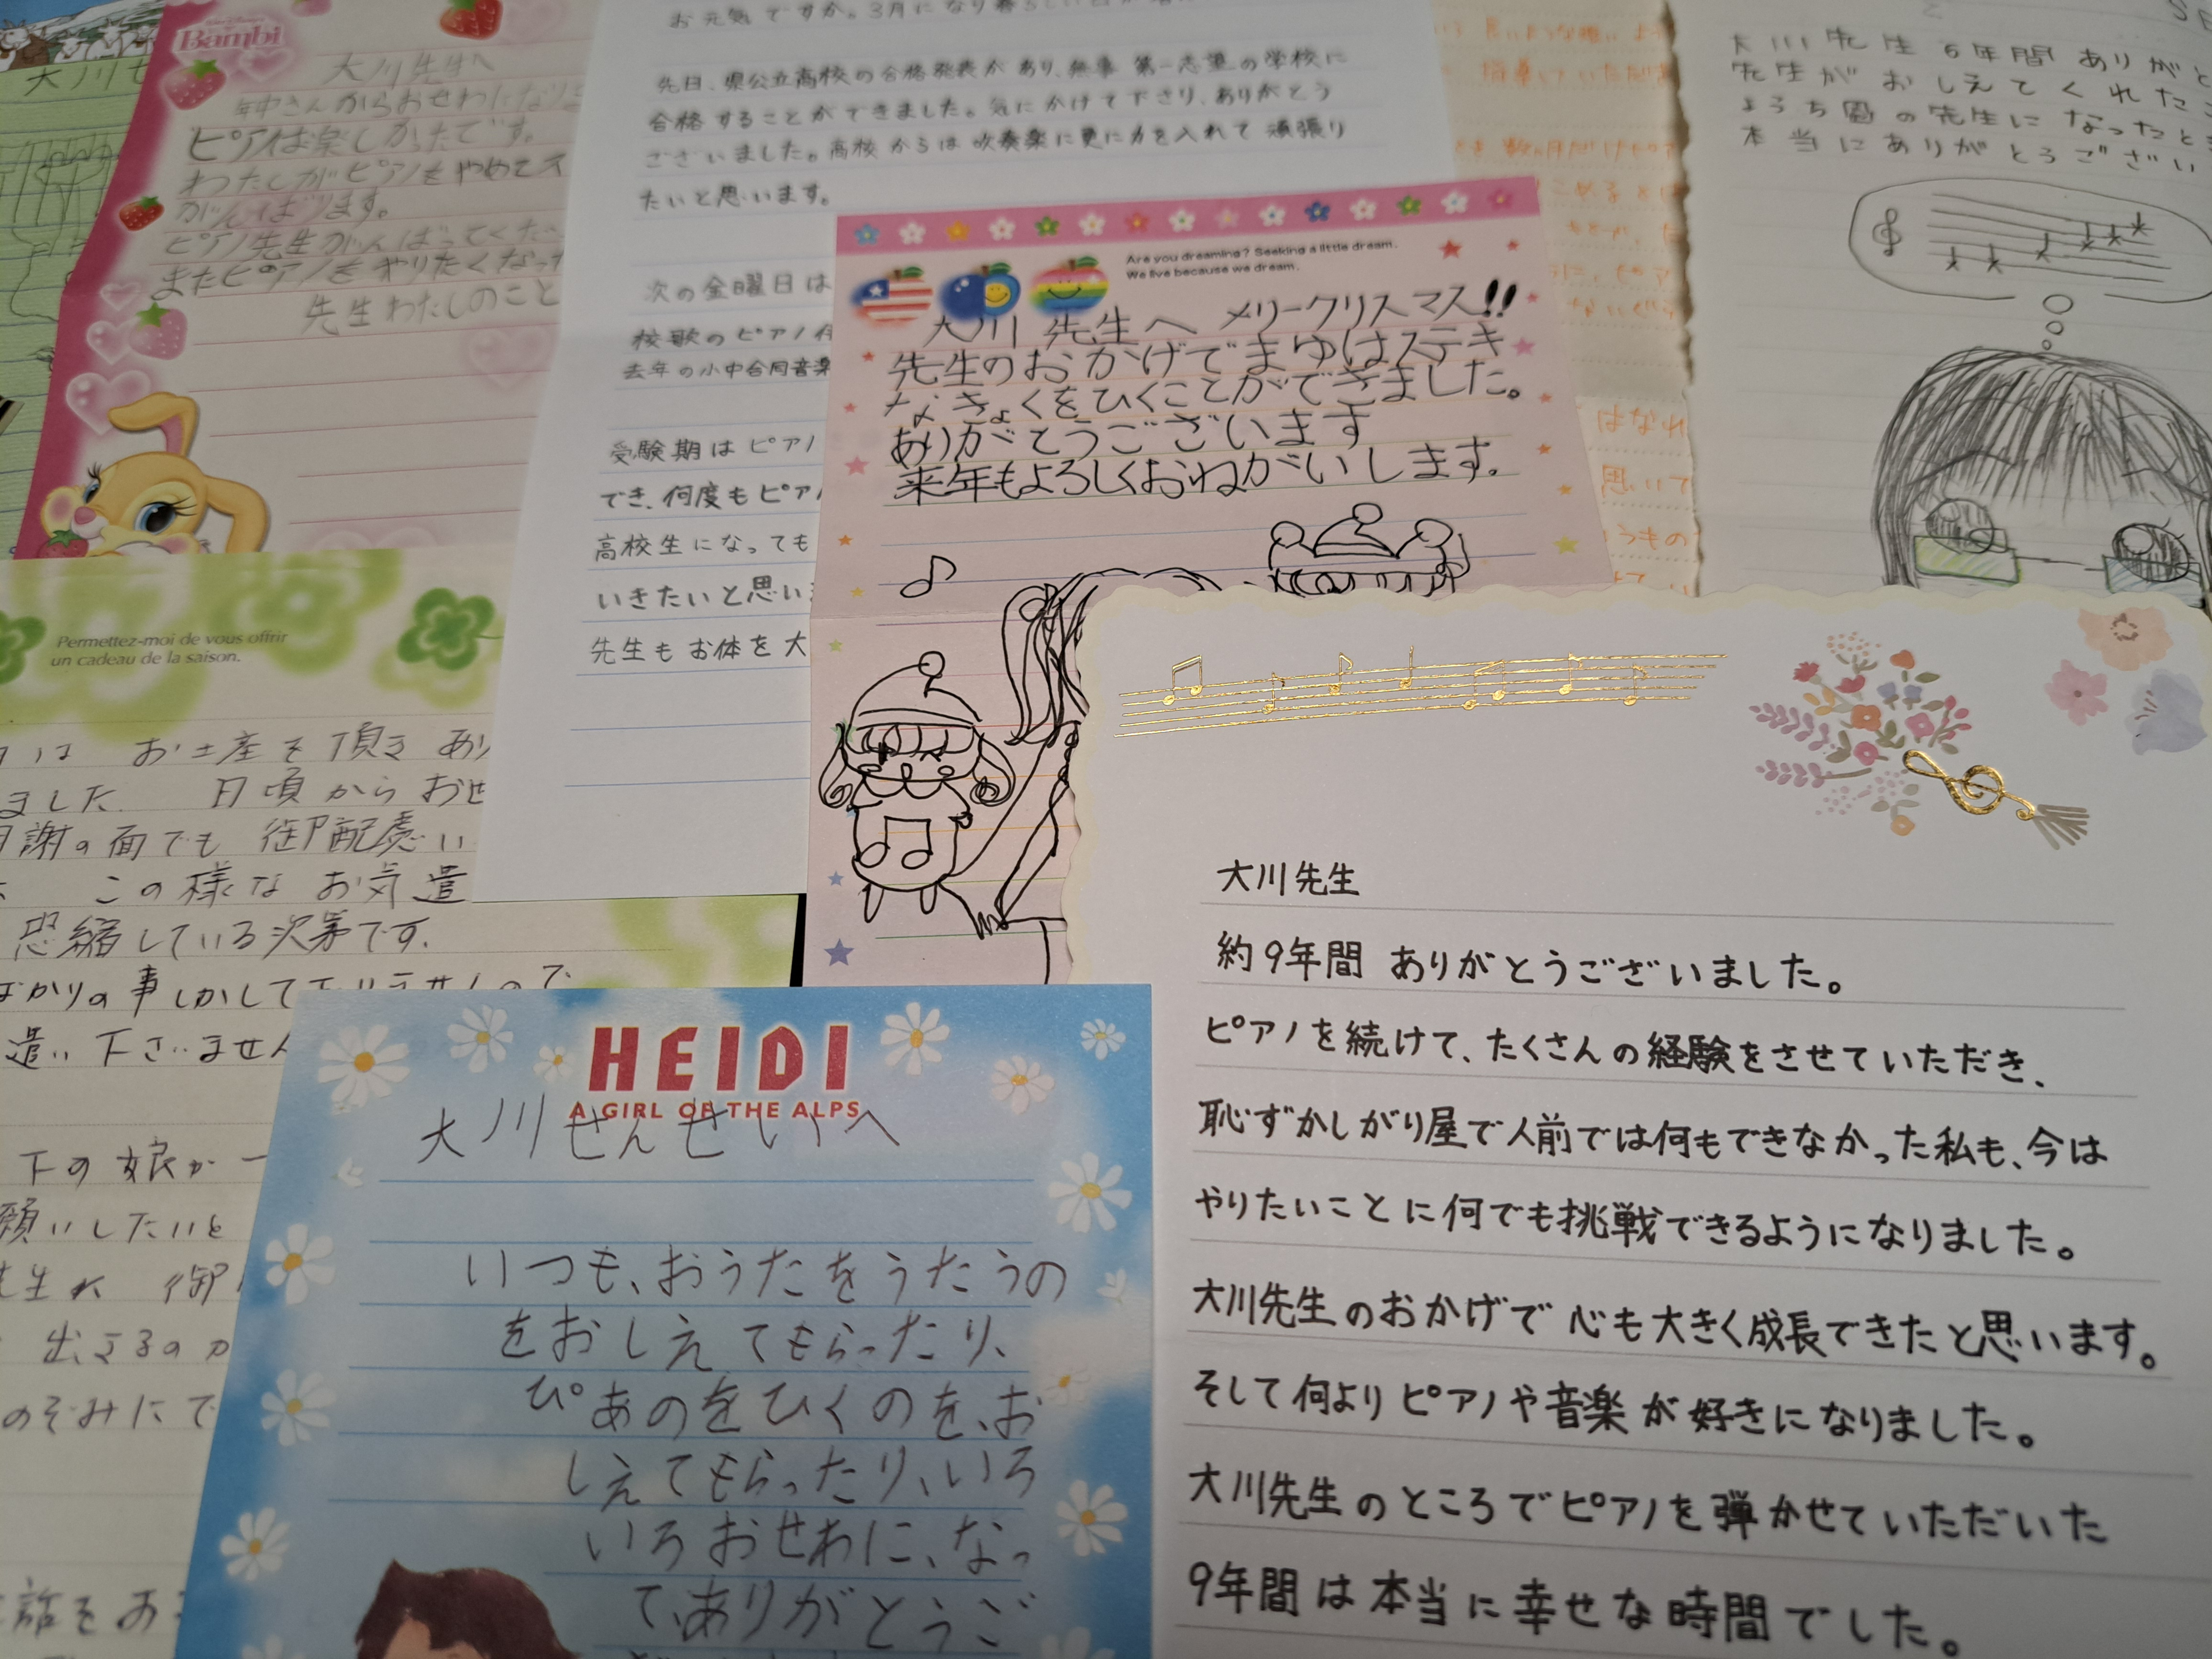 WALT DISNEY'S
Bambi
大川先生へ
年中さんからおせわになり
ピアノは楽しかったです。
わたしがピアノをやめても
がんばります。
ピアノ先生がんばってくだ
またピアノをやりたくなった
先生わたしのこと
お元気ですか。3月になり春らしい日が
先日、県公立高校の合格発表があり、無事 第一志望の学校に
合格することができました。気にかけて下さり、ありがとう
ございました。高校からは吹奏楽に更に力を入れて 頑張り
たいと思います。
次の金曜日は
校歌のピアノ
去年の小中合同音楽
受験期はピアノ
でき、何度もピアノ
高校生になっても
いきたいと思い
先生もお体を大
大川先生 6年間 ありがと
先生が おしえてくれた
ようち園の先生になったと
本当にありがとうござい
Are you dreaming? Seeking a little dream.
We live because we dream.
大川 先生へ メリークリスマス!!
先生のおかげでまゆはステキ
なきょくをひくことができました。
ありがとうございます
来年もよろしくおねがいします。
Permettez-moi de vous offrir
un cadeau de la saison.
は お土産を頂き あり
ました. 日頃からおせ
月謝の面でも 御配慮い
この様な お気遣
恐縮している次第です.
ばかりの事しかして
遣い下さいません
下の娘が一
願いしたいと
先生に 御
出来るのか
のぞみにで
話をお
HEIDI
A GIRL OF THE ALPS
大川せんせいへ
いつも、おうたをうたうの
をおしえてもらったり、
ぴあのをひくのを、お
しえてもらったり、いろ
いろおせわに、なっ
て、ありがとうご
大川先生
約9年間 ありがとうございました。
ピアノを続けて、たくさんの経験をさせていただき、
恥ずかしがり屋で人前では何もできなかった私も、今は
やりたいことに何でも挑戦できるようになりました。
大川先生のおかげで 心も大きく成長できたと思います。
そして何よりピアノや音楽が好きになりました。
大川先生のところでピアノを弾かせていただいた
9年間は本当に幸せな時間でした。